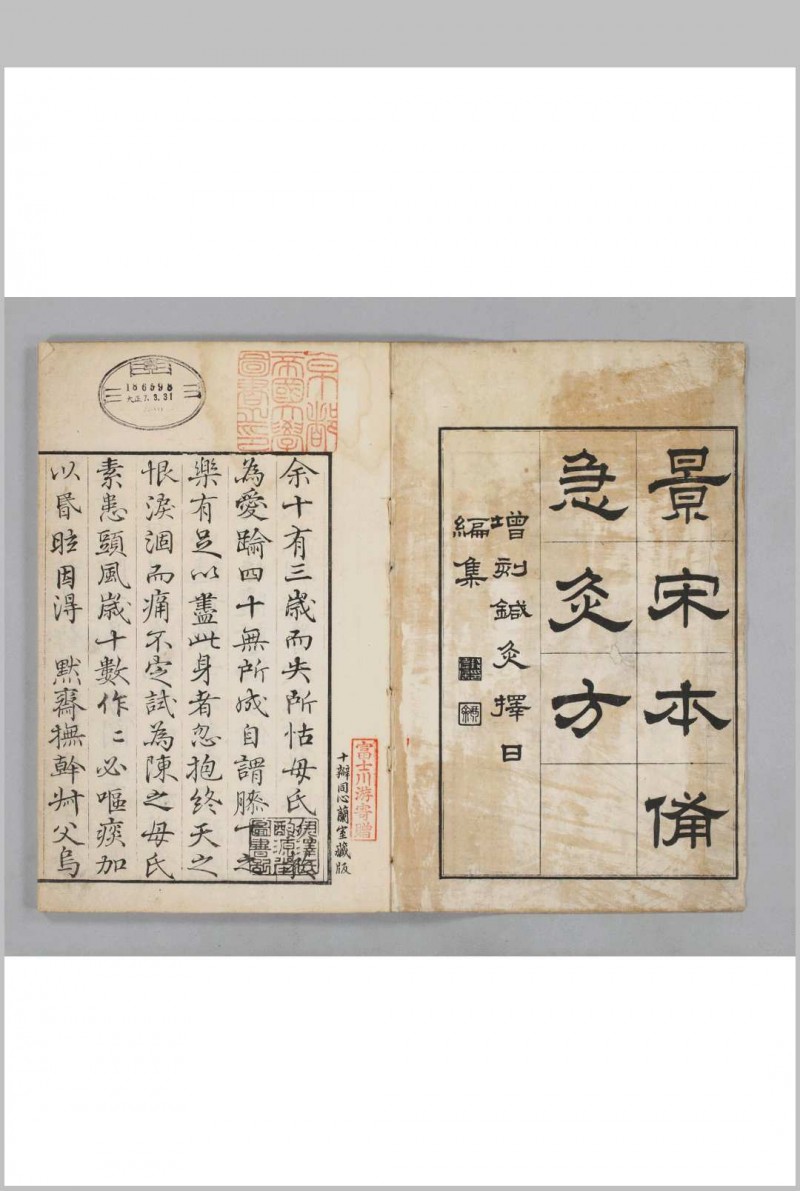 景宋本備
急灸方
增刻鍼灸擇日
編集
京都
帝國大學
圖書之印
186598
大正7.3.31
富士川游寄贈
十瓣同心蘭室藏版
余十有三歲而失所怙母氏
為愛踰四十無所成自謂膝下之
樂有足以盡此身者忽抱終天之
恨淚涸而痛不定試為陳之母氏
素患頭風歲十數作〻必嘔痰加
以昬眩因得 默齋撫幹叔父烏
伊澤氏
酌源堂
圖書記